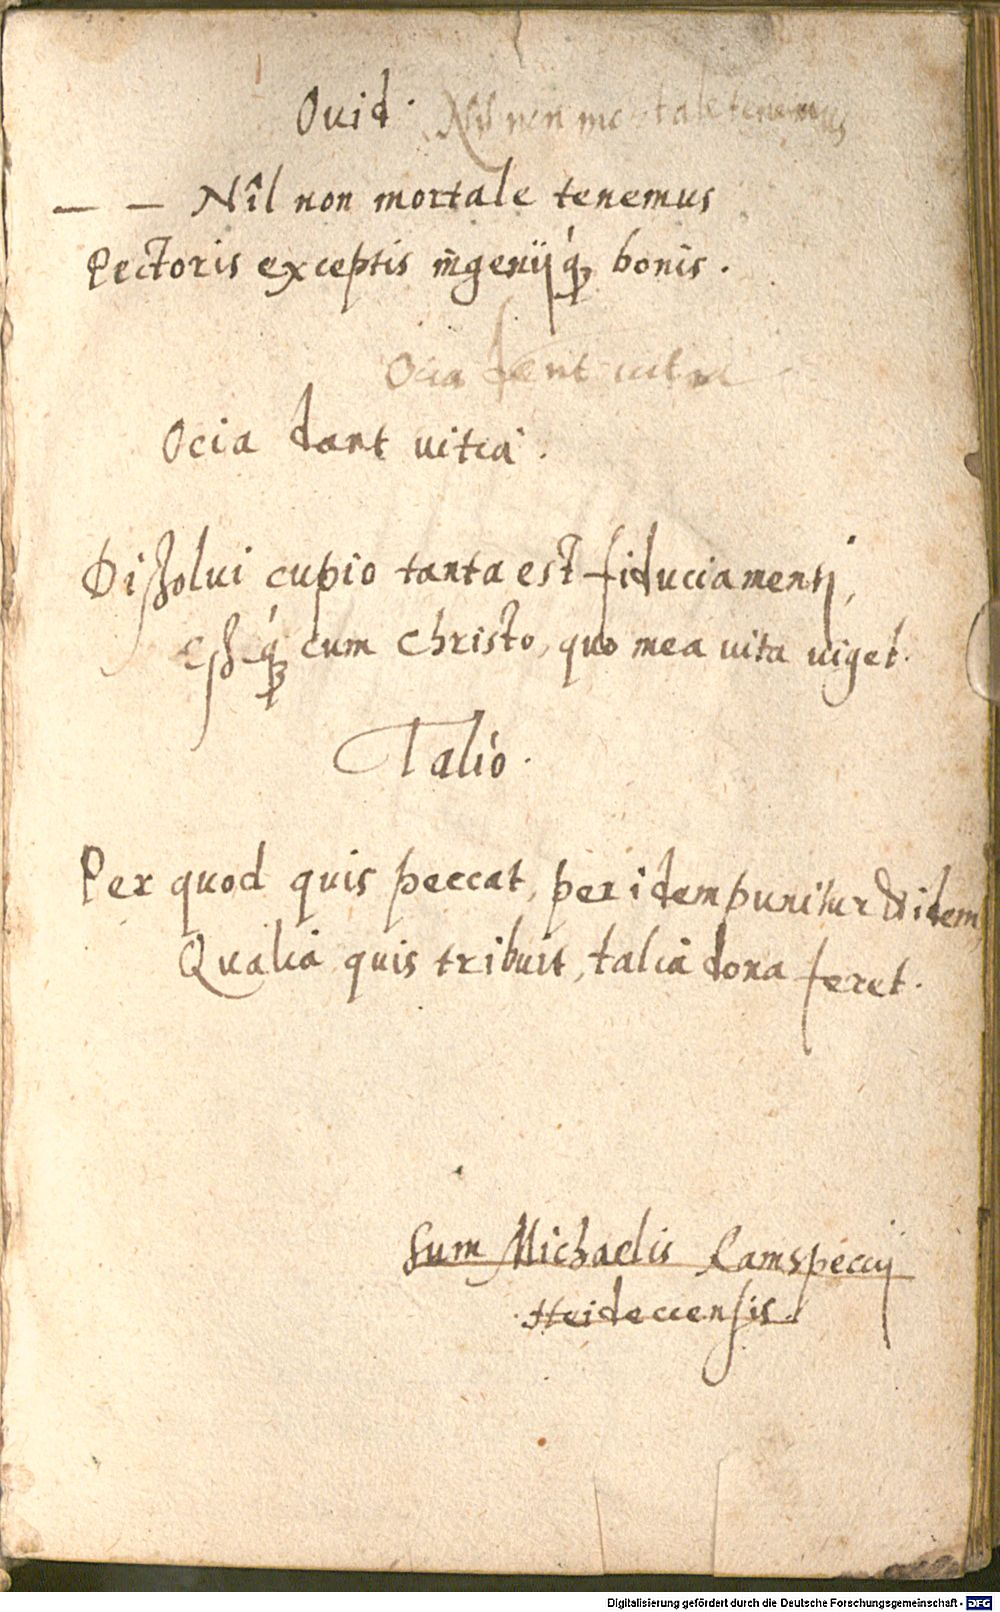 Ouid. Nil non mortale tenemus
— — Nîl non mortale tenemus
Pectoris exceptis ingenijq́; bonis.
Ocia dent uitae
Ocia dant uitia.
Dißolui cupio tanta est fiducia mentj,
Eßeq́; cum Christo, quo mea uita uiget.
Talio.
Per quod quis peccat, per idem punitur & idem,
Qualia quis tribuit, talia dona feret.
Sum Michaelis Ramspeccij
Heideccensis.
Digitalisierung gefördert durch die Deutsche Forschungsgemeinschaft - DFG